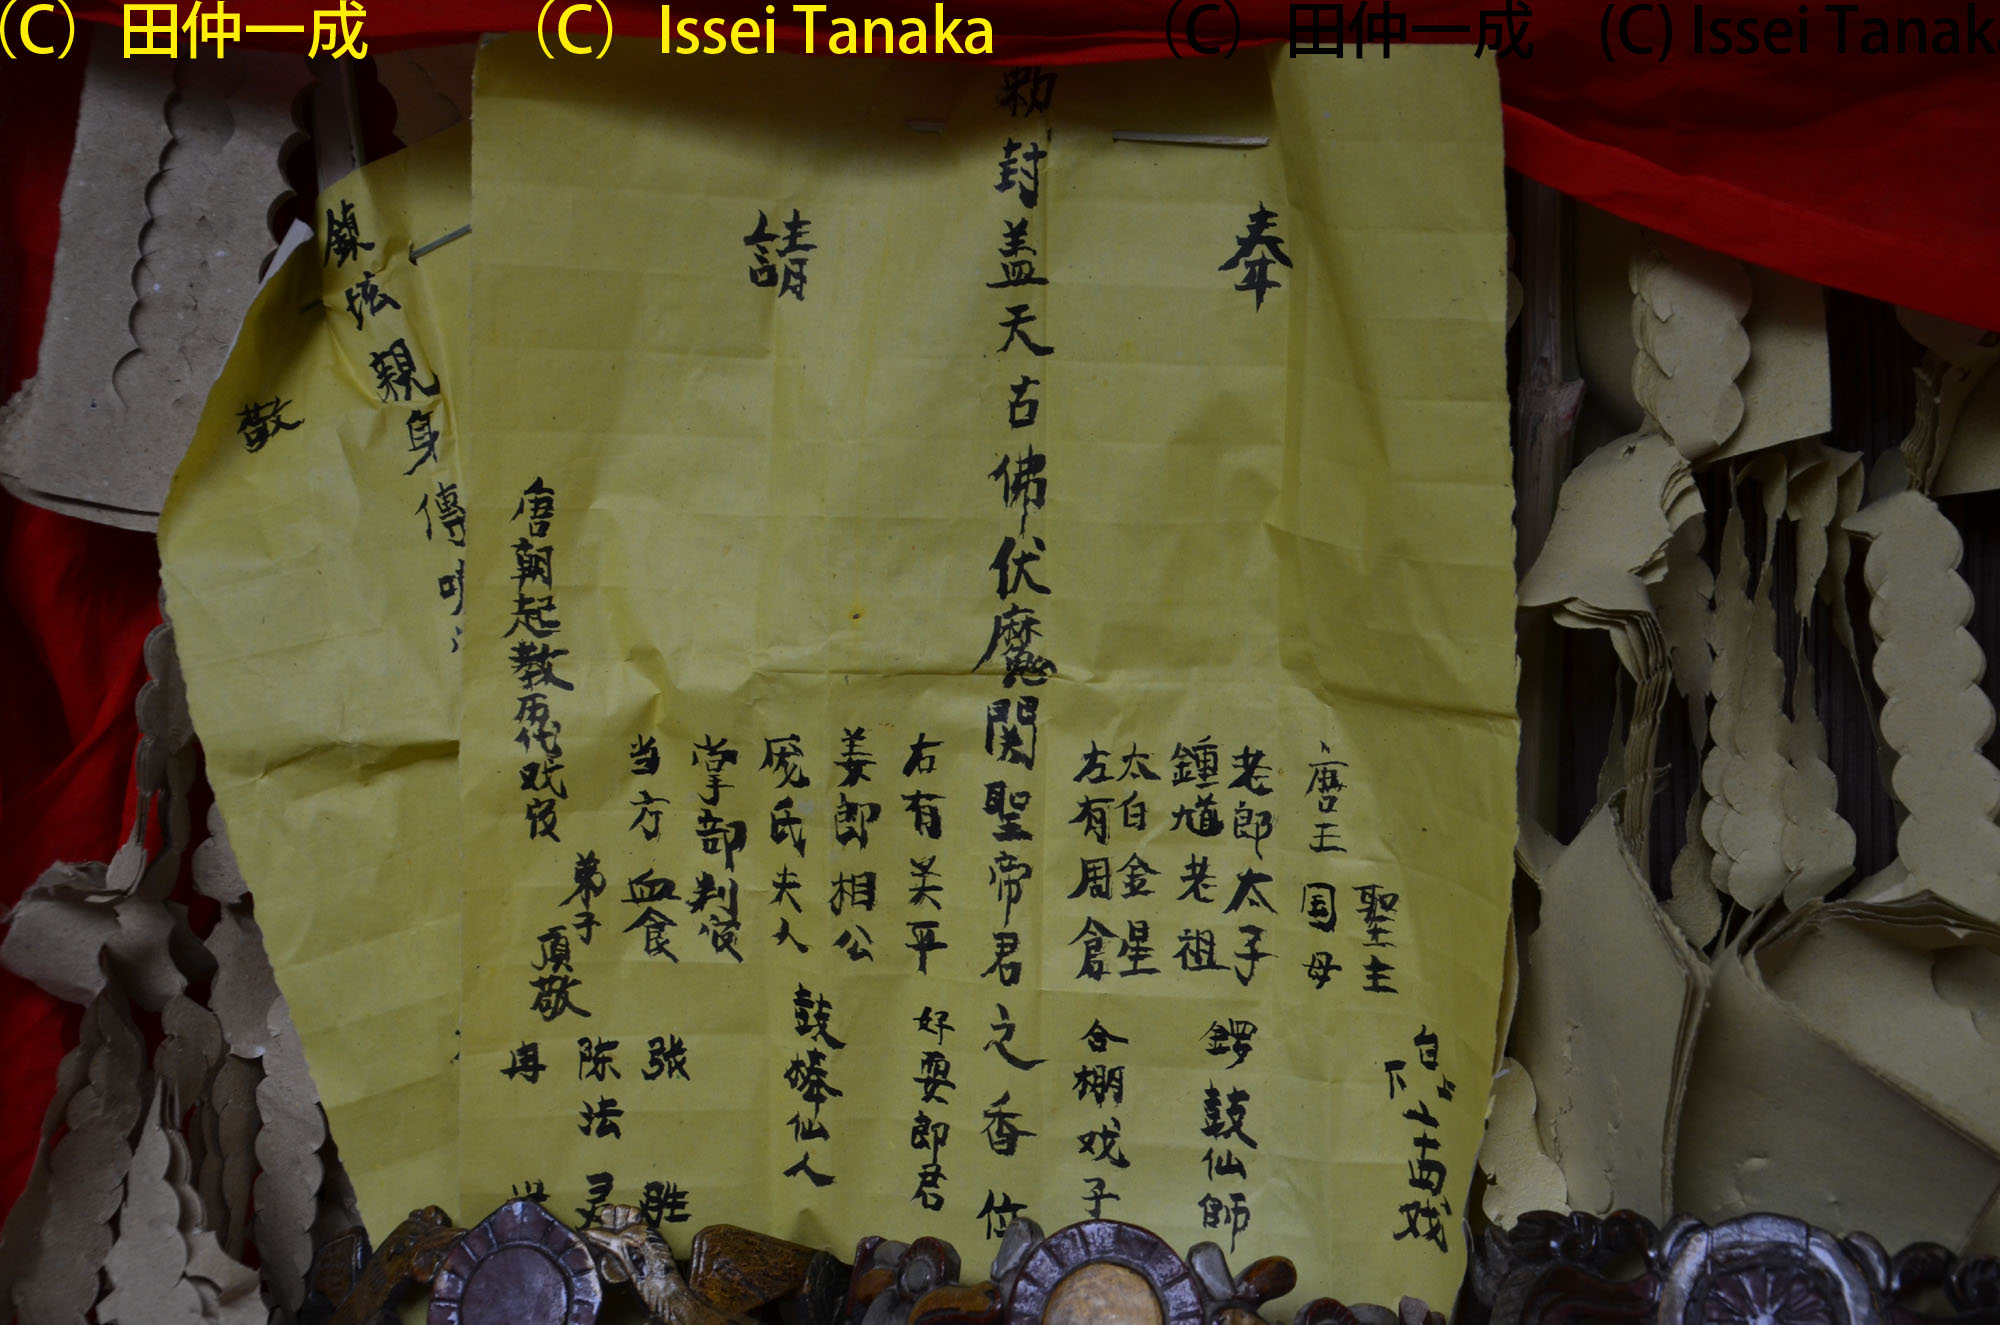 (C) 田仲一成 (C) Issei Tanaka (C) 田仲一成 (C) Issei Tanaka
奉
聖主
唐王国母
老郎太子
鍾馗老祖
鑼鼓仙師
太白金星
左有周倉
合棚戏子
勅封盖天古佛伏魔関聖帝君之香位
右有关平
好耍郎君
姜郎相公
氏夫人
鼓棒仙人
請
掌部判
当方血食
張
胜
弟子
陈法灵
頂敬
冉
唐朝起教历代戏
鎮坛親身傳
敬